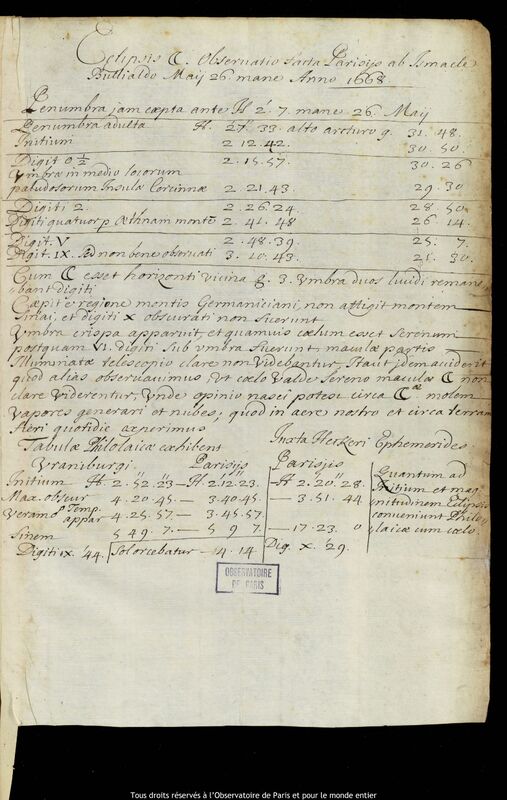 Eclipsis ☾. Observatio facta Parisijs ab Ismaele
Bullialdo Maij 26. mane Anno 1668
Penumbra jam cæpta ante H 2. 7. mane 26. Maij
Penumbra adulta H. 2 7. 33. alto arcturo g. 31. 48.
Initium 2 12. 42. 30. 50.
Digit 0 ½ 2. 15. 57. 30. 26
Vmbra in medio locorum
paludosorum Insula Corcinnæ 2. 21. 43. 29. 30
Digiti 2. 2. 26 24. 28. 50.
Digiti quatuor p Ætnam montē 2. 41. 48 26 14.
Digit. V 2. 48. 39. 25. 7.
Digit. IX. sed non bene observati 3. 10. 43. 21. 30.
Cum ☾ esset horizonti vicina g. 3. Vmbra duos lucidi remans
bant digiti
Cæpit e regione montis Germaniciani, non attigit montem
Sinai, et digiti X obscurati non fuerunt
Vmbra crispa apparuit, et quamvis cælum esset serenum
postquam VI. digiti sub vmbra fuerunt, maculæ partis
Illuminatæ telescopio clare non videbantur, Haut idem accidit
quod alias observavimus, vt cælo valde sereno maculæ ☾ non
clare viderentur, Vnde opinio nasci potest circa ☾ molem
Vapores generari et nubes, quod in aere nostro et circa terram
fieri quotidie experimus
Tabulæ Philolaicæ exhibent. Iuxta Heckeri Ephemerides.
Vraniburgi. Parisijs Parisijs
Initium H 2. 52. 23 — H 2. 12. 23. — H 2. 20. 28.
Max. obscur 4. 20. 45 — 3. 40. 45. — 3. 51. 44
Veram o Temp. appar 4. 25. 57 — 3. 45. 57.
Finem 5 49. 7. — 5 9 7. — 17. 23. 0
Digiti IX. 44. Sol orcebatur — 4. 14 Dig. X. 29.
Quantum ad
Initium et mag
nitudinem Eclipsis
conveniunt Philo
laicæ cum cælo
OBSERVATOIRE
DE PARIS
Tous droits réservés à l'Observatoire de Paris et pour le monde entier